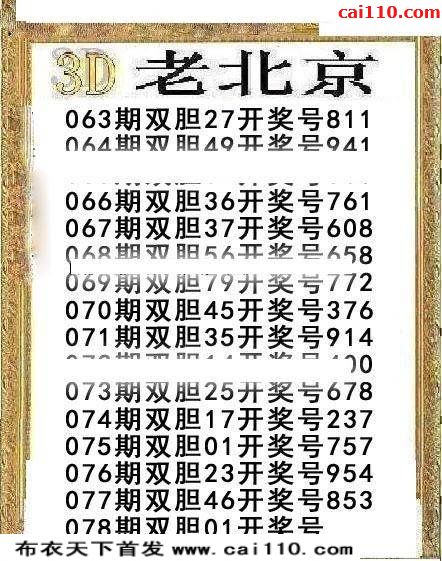 cai110.com
3D 老北京
063期双胆27开奖号811
064期双胆49开奖号941
066期双胆36开奖号761
067期双胆37开奖号608
068期双胆56开奖号658
069期双胆79开奖号772
070期双胆45开奖号376
071期双胆35开奖号914
073期双胆25开奖号678
074期双胆17开奖号237
075期双胆01开奖号757
076期双胆23开奖号954
077期双胆46开奖号853
078期双胆01开奖号
布衣天下首发 www.cai110.com